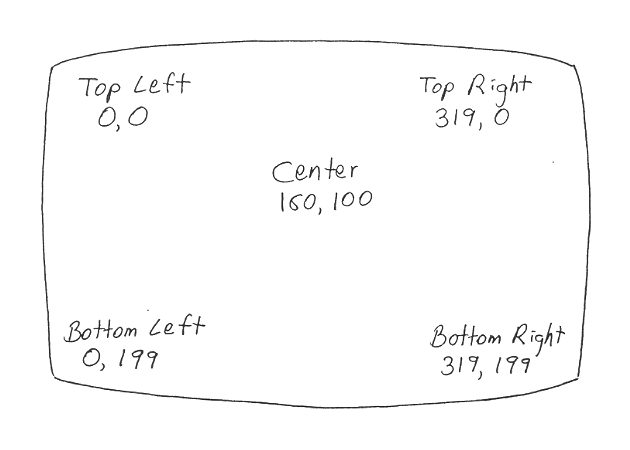 Top Left
0,0
Top Right
319, 0
Center
160, 100
Bottom Left
0, 199
Bottom Right
319, 199